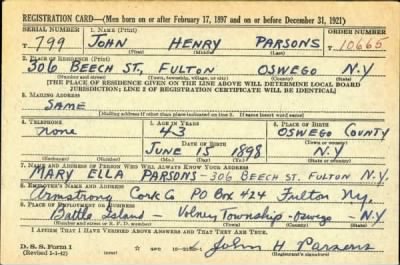 REGISTRATION CARD—(Men born on or after February 17, 1897 and on or before December 31, 1921)
SERIAL NUMBER 1. NAME (Print) ORDER NUMBER
T 799 JOHN HENRY PARSONS T 10665
(First) (Middle) (Last)
2. PLACE OF RESIDENCE (Print)
306 BEECH ST. FULTON OSWEGO N.Y
(Number and street) (Town, township, village, or city) (County) (State)
[THE PLACE OF RESIDENCE GIVEN ON THE LINE ABOVE WILL DETERMINE LOCAL BOARD
JURISDICTION; LINE 2 OF REGISTRATION CERTIFICATE WILL BE IDENTICAL]
3. MAILING ADDRESS
SAME
(Mailing address if other than place indicated on line 2. If same insert word same)
4. TELEPHONE 5. AGE IN YEARS 6. PLACE OF BIRTH
none 43 OSWEGO COUNTY
DATE OF BIRTH (Town or county)
JUNE 15 1898 N.Y
(Exchange) (Number) (Mo.) (Day) (Yr.) (State or country)
7. NAME AND ADDRESS OF PERSON WHO WILL ALWAYS KNOW YOUR ADDRESS
MARY ELLA PARSONS - 306 BEECH ST. FULTON N.Y.
8. EMPLOYER'S NAME AND ADDRESS
Armstrong Cork Co PO Box 424 Fulton Ny.
9. PLACE OF EMPLOYMENT OR BUSINESS
Battle Island - Volney Township - Oswego - N.Y.
(Number and street or R. F. D. number) (Town) (County) (State)
I AFFIRM THAT I HAVE VERIFIED ABOVE ANSWERS AND THAT THEY ARE TRUE.
D. S. S. Form 1
(Revised 1-1-42) John H Parsons
(Registrant's signature)